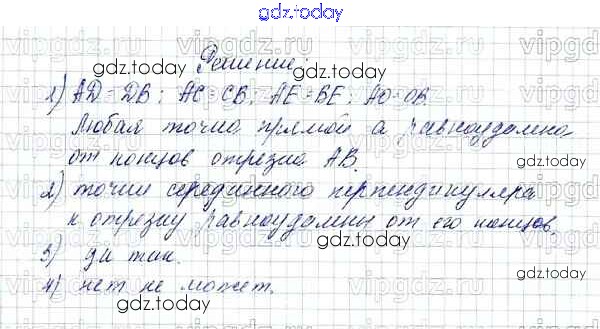 gdz.today
vipgdz.ru vipgdz.ru vipgdz.ru
gdz.today Решение: gdz.today
1) AD=DB; AC=CB; AE=BE; AO=OB.
Любая точка прямой а равноудалена
от концов отрезка AB.
gdz.today
2) точки серединного перпендикуляра
к отрезку равноудалены от его концов.
gdz.today gdz.today
3) да так.
4) нет не может.
gdz.today